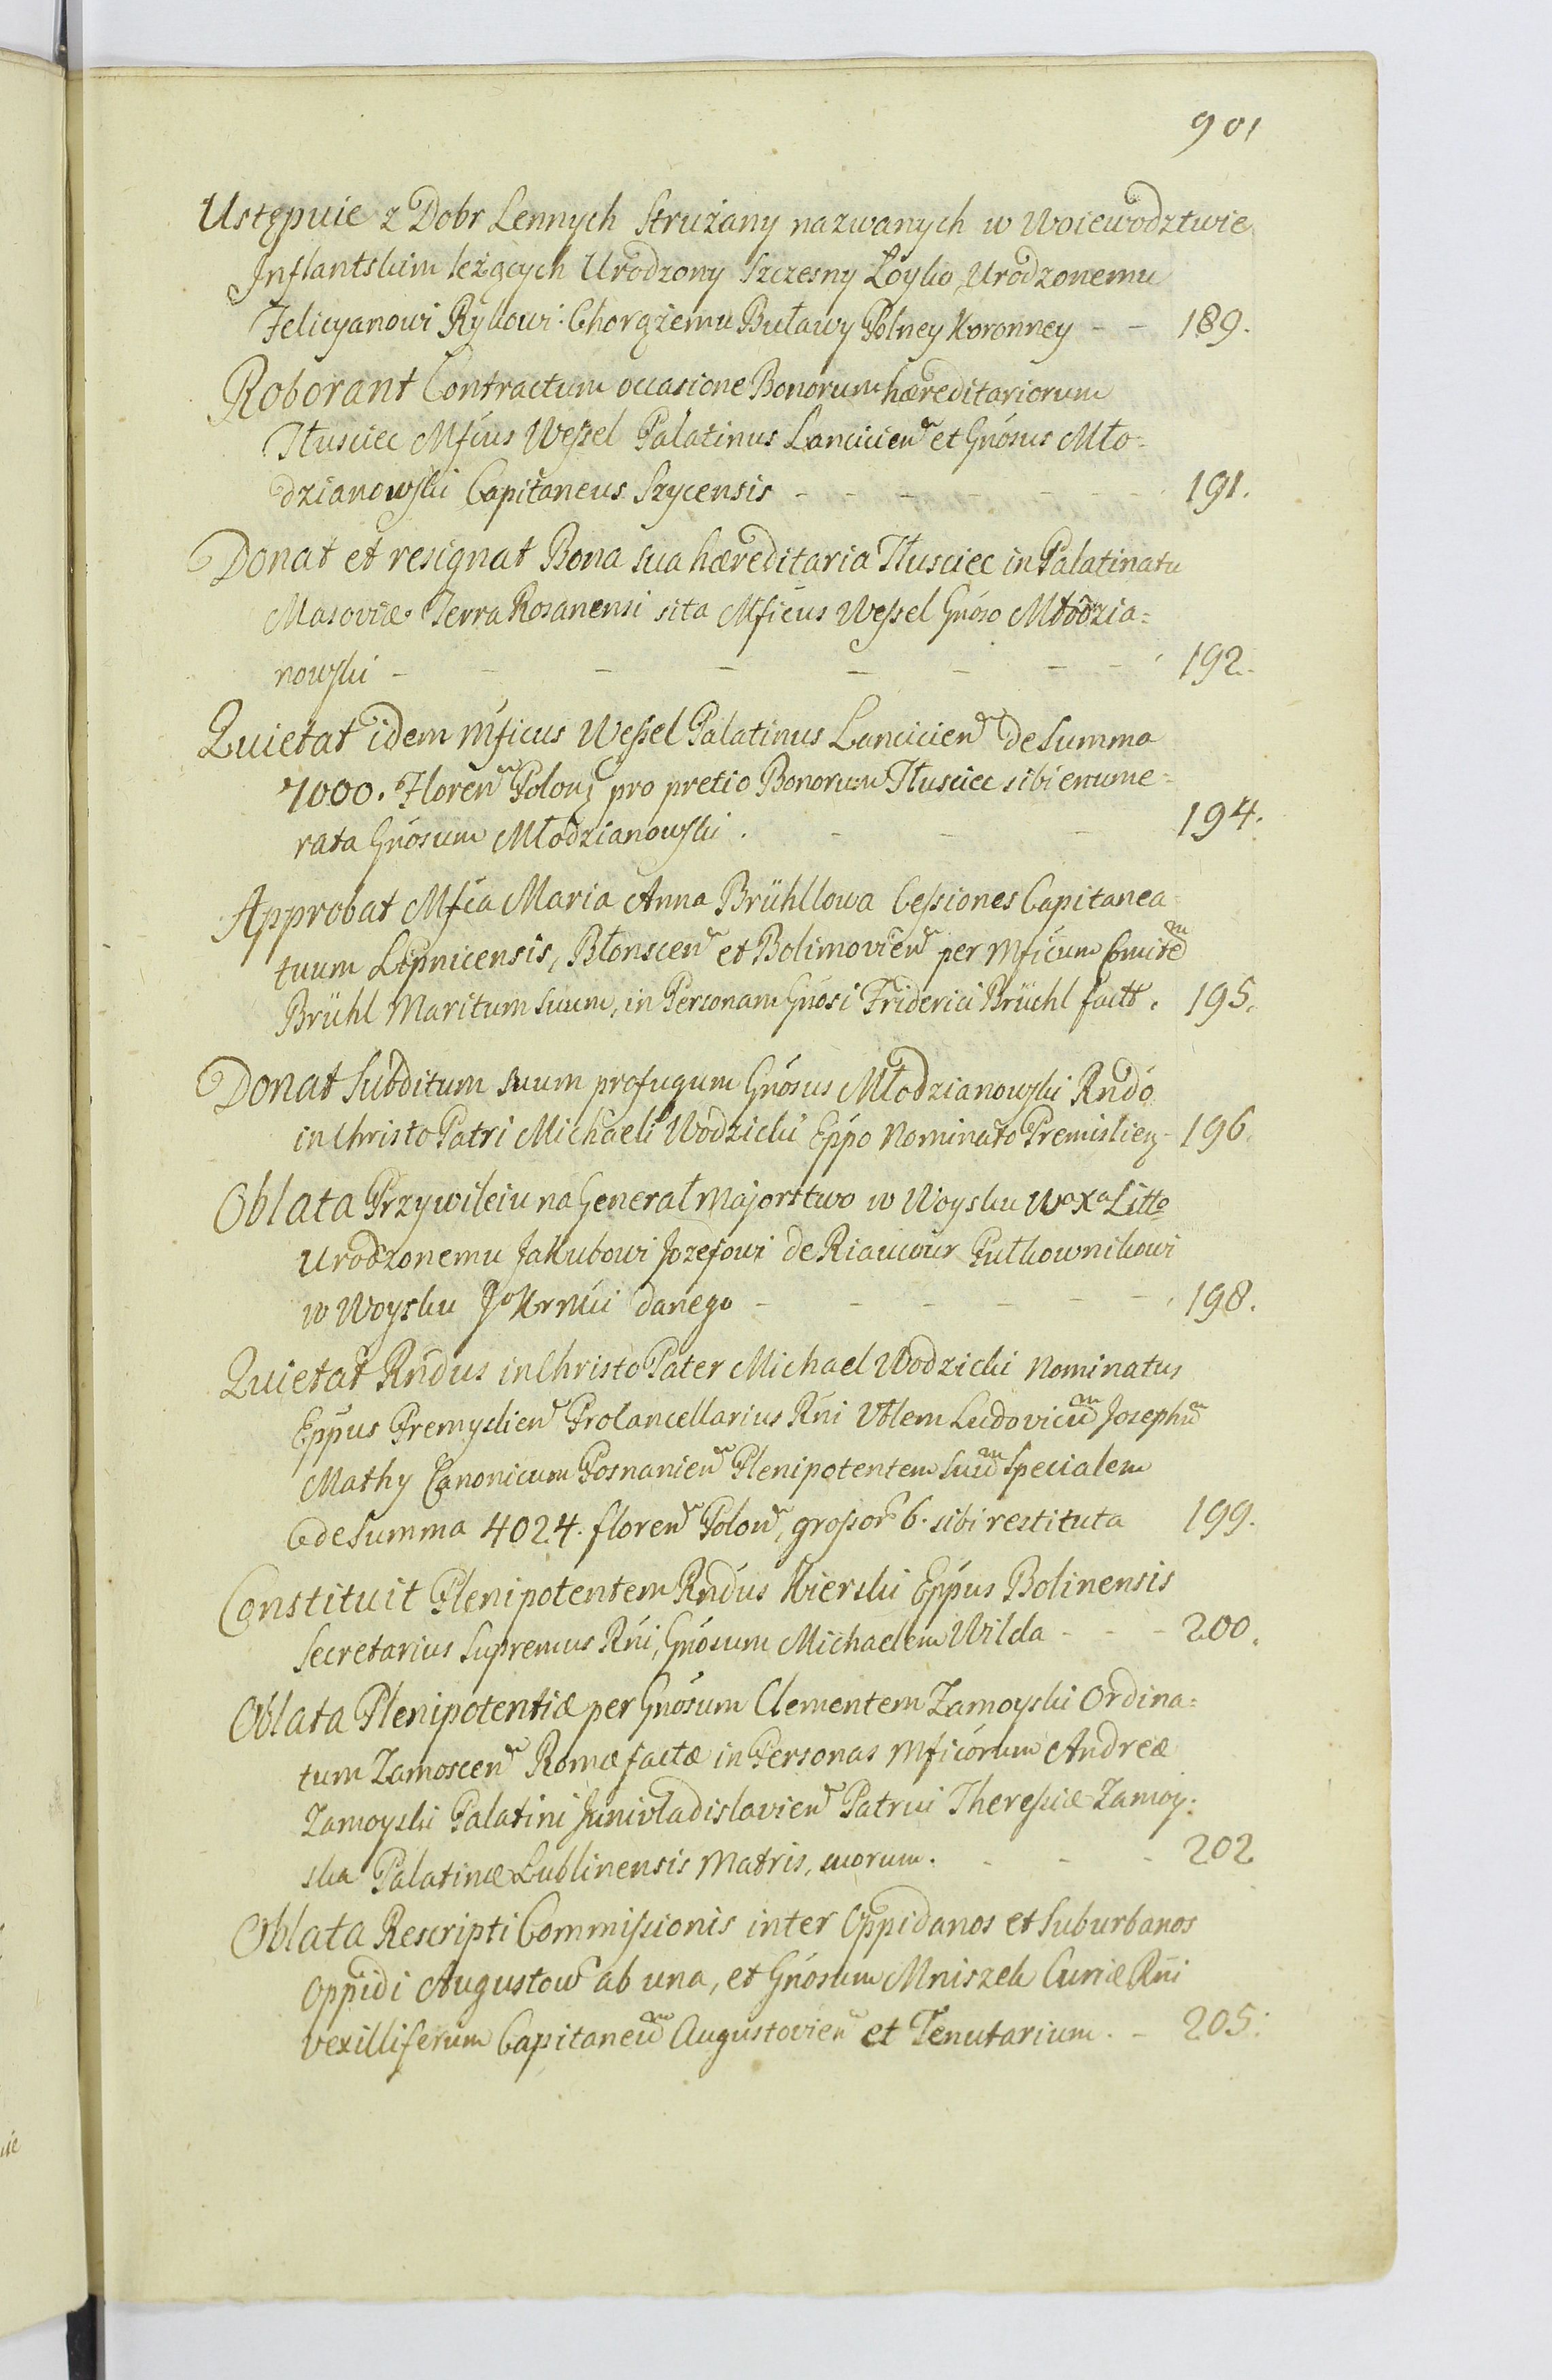 901
Ustępuie z Dobr Lennych Strużany nazwanych w Woiewodztwie
Inflantskim leżących Urodzony Szczesny Łoyko, Urodzonemu
Felicyanowi Rykowi Chorążemu Buławy Polney Koronney - - 189.
Roborant Contractum occasione Bonorum hæreditariorum
Tłusciec Mficus Weſsel Palatinus Lanciciens et Gnosus Mło-
dzianowski Capitaneus Szycensis - - - - - - - 191.
Donat et resignat Bona sua hæreditaria Tłusciec in Palatinatu
Masoviæ Terra Rosanensi sita Mficus Weſsel Gnoso Młodzia-
nowski - - - - - - - 192.
Quietat idem Mficus Weſsel Palatinus Lanciciens de Summa
7000. Floren Polon; pro pretio Bonorum Tłusciec sibi enume-
rata Gnosum Młodzianowski . - - - 194.
Approbat Mfca Maria Anna Brühllowa Ceſsiones Capitanea-
tuum Lipnicensis, Błonscen et Bolimovien per Mficum Comitem
Brühl Maritum suum, in Personam Gnosi Friderici Brüchl fact. 195.
Donat Subditum suum profugum Gnosus Młodzianowski Rndo
in Christo Patri Michaeli Wodzicki Eppo Nominato Premislien - 196.
Oblata Przywileiu na Generał Majorstwo w Woysku Wo Xa Litto
Urodzonemu Jakubowi Jozefowi de Riaucour Pułkownikowi
w Woysku JoKrMci danego - - - - - - 198.
Quietat Rndus in Christo Pater Michael Wodzicki Nominatus
Eppus Premyslien Procancellarius Rni Vblem Ludovicum Josephum
Mathy Canonicum Posnanien Plenipotentem suum specialem
de Summa 4024. floren Polon, groſsor 6. sibi restituta 199.
Constituit Plenipotentem Rndus Kierski Eppus Bolinensis
Secretarius Supremus Rni, Gnosum Michaelem Wilda - - - 200.
Oblata Plenipotentiæ per Gnosum Clementem Zamoyski Ordina-
tum Zamoscen Romæ factæ in Personas Mficorum Andreæ
Zamoyski Palatini Junivladislavien Patrui Thereſsiæ Zamoy-
ska Palatinæ Lublinensis Matris, suorum. - - - 202
Oblata Rescripti Commiſsionis inter Oppidanos et Suburbanos
Oppidi Augustow ab una, et Gnosum Mniszek Curiæ Rni
Vexilliferum Capitaneum Augustovien et Tenutarium. - 205.